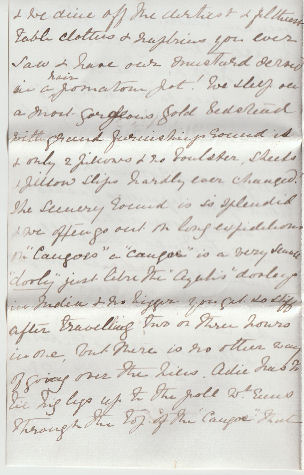 & we dine off the dirtiest & filthiest
table cloths & napkins you ever
saw & have our mustard served
in a pomatum pot! We sleep on
a most gorgeous gold bedstead
with grand furnishings round it
& only 2 pillows & no boulster, sheets
& pillow slips hardly ever changed
The scenery round is so splendid
& we often go out on long expeditions
in "Cangoes" a "cangoe" is a very small
"dooly" just like the dooleys
in India & no bigger you get so stiff
after travelling two or three hours
in one, but there is no other way
of going over the hills. Adie has to
tie his legs up to the pole wh. runs
through the top of the "Cangoe" that